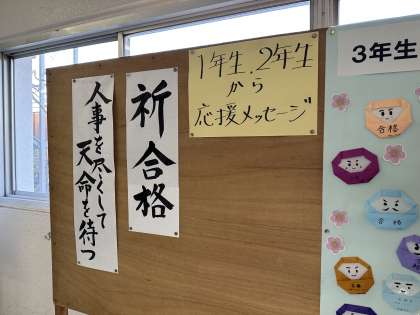 人事を尽くして
天命を待つ
祈合格
1年生.2年生
から
応援メッセージ
3年生
合格
合格